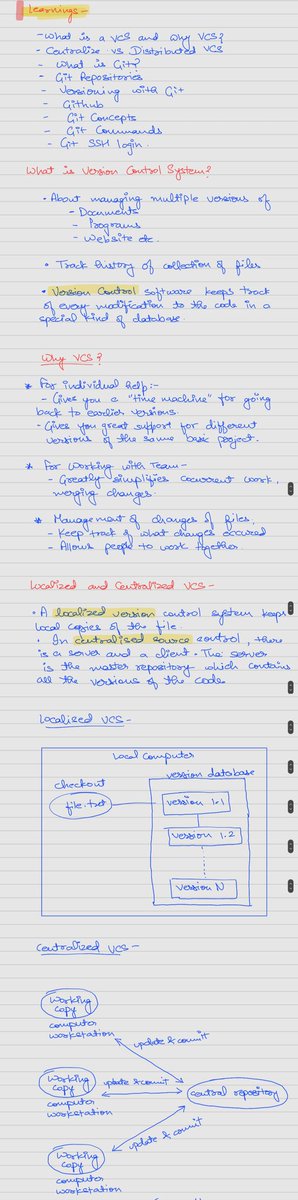 Learnings -
- What is a VCS and Why VCS?
- Centralize vs Distributed VCS
- What is Git?
- Git Repositories
- Versioning with Git
- Github
- Git Concepts
- Git Commands
- Git SSH login.
What is Version Control System?
• About managing multiple versions of
- Documents
- Programs
- Website etc.
• Track history of collection of files
• Version Control software keeps track
of every modification to the code in a
special kind of database.
Why VCS?
* For individual help:-
- Gives you a "time machine" for going
back to earlier versions.
- Gives you great support for different
versions of the same basic project.
* For Working with Team -
- Greatly simplifies cocurrent work,
merging changes.
* Management of changes of files,
- Keep track of what changes occured
- Allows people to work together.
Localized and Centralized VCS -
• A localized version control system keeps
local copies of the file.
• In centralised source control, there
is a server and a client. The server
is the master repository which contains
all the versions of the code
Localised VCS -
Local Computer
checkout
version database
file.txt
version 1.1
version 1.2
version N
Centralized VCS -
Working
copy
computer
workstation
update & commit
Working
copy
update & commit
central repository
computer
workstation
update & commit
Working
copy